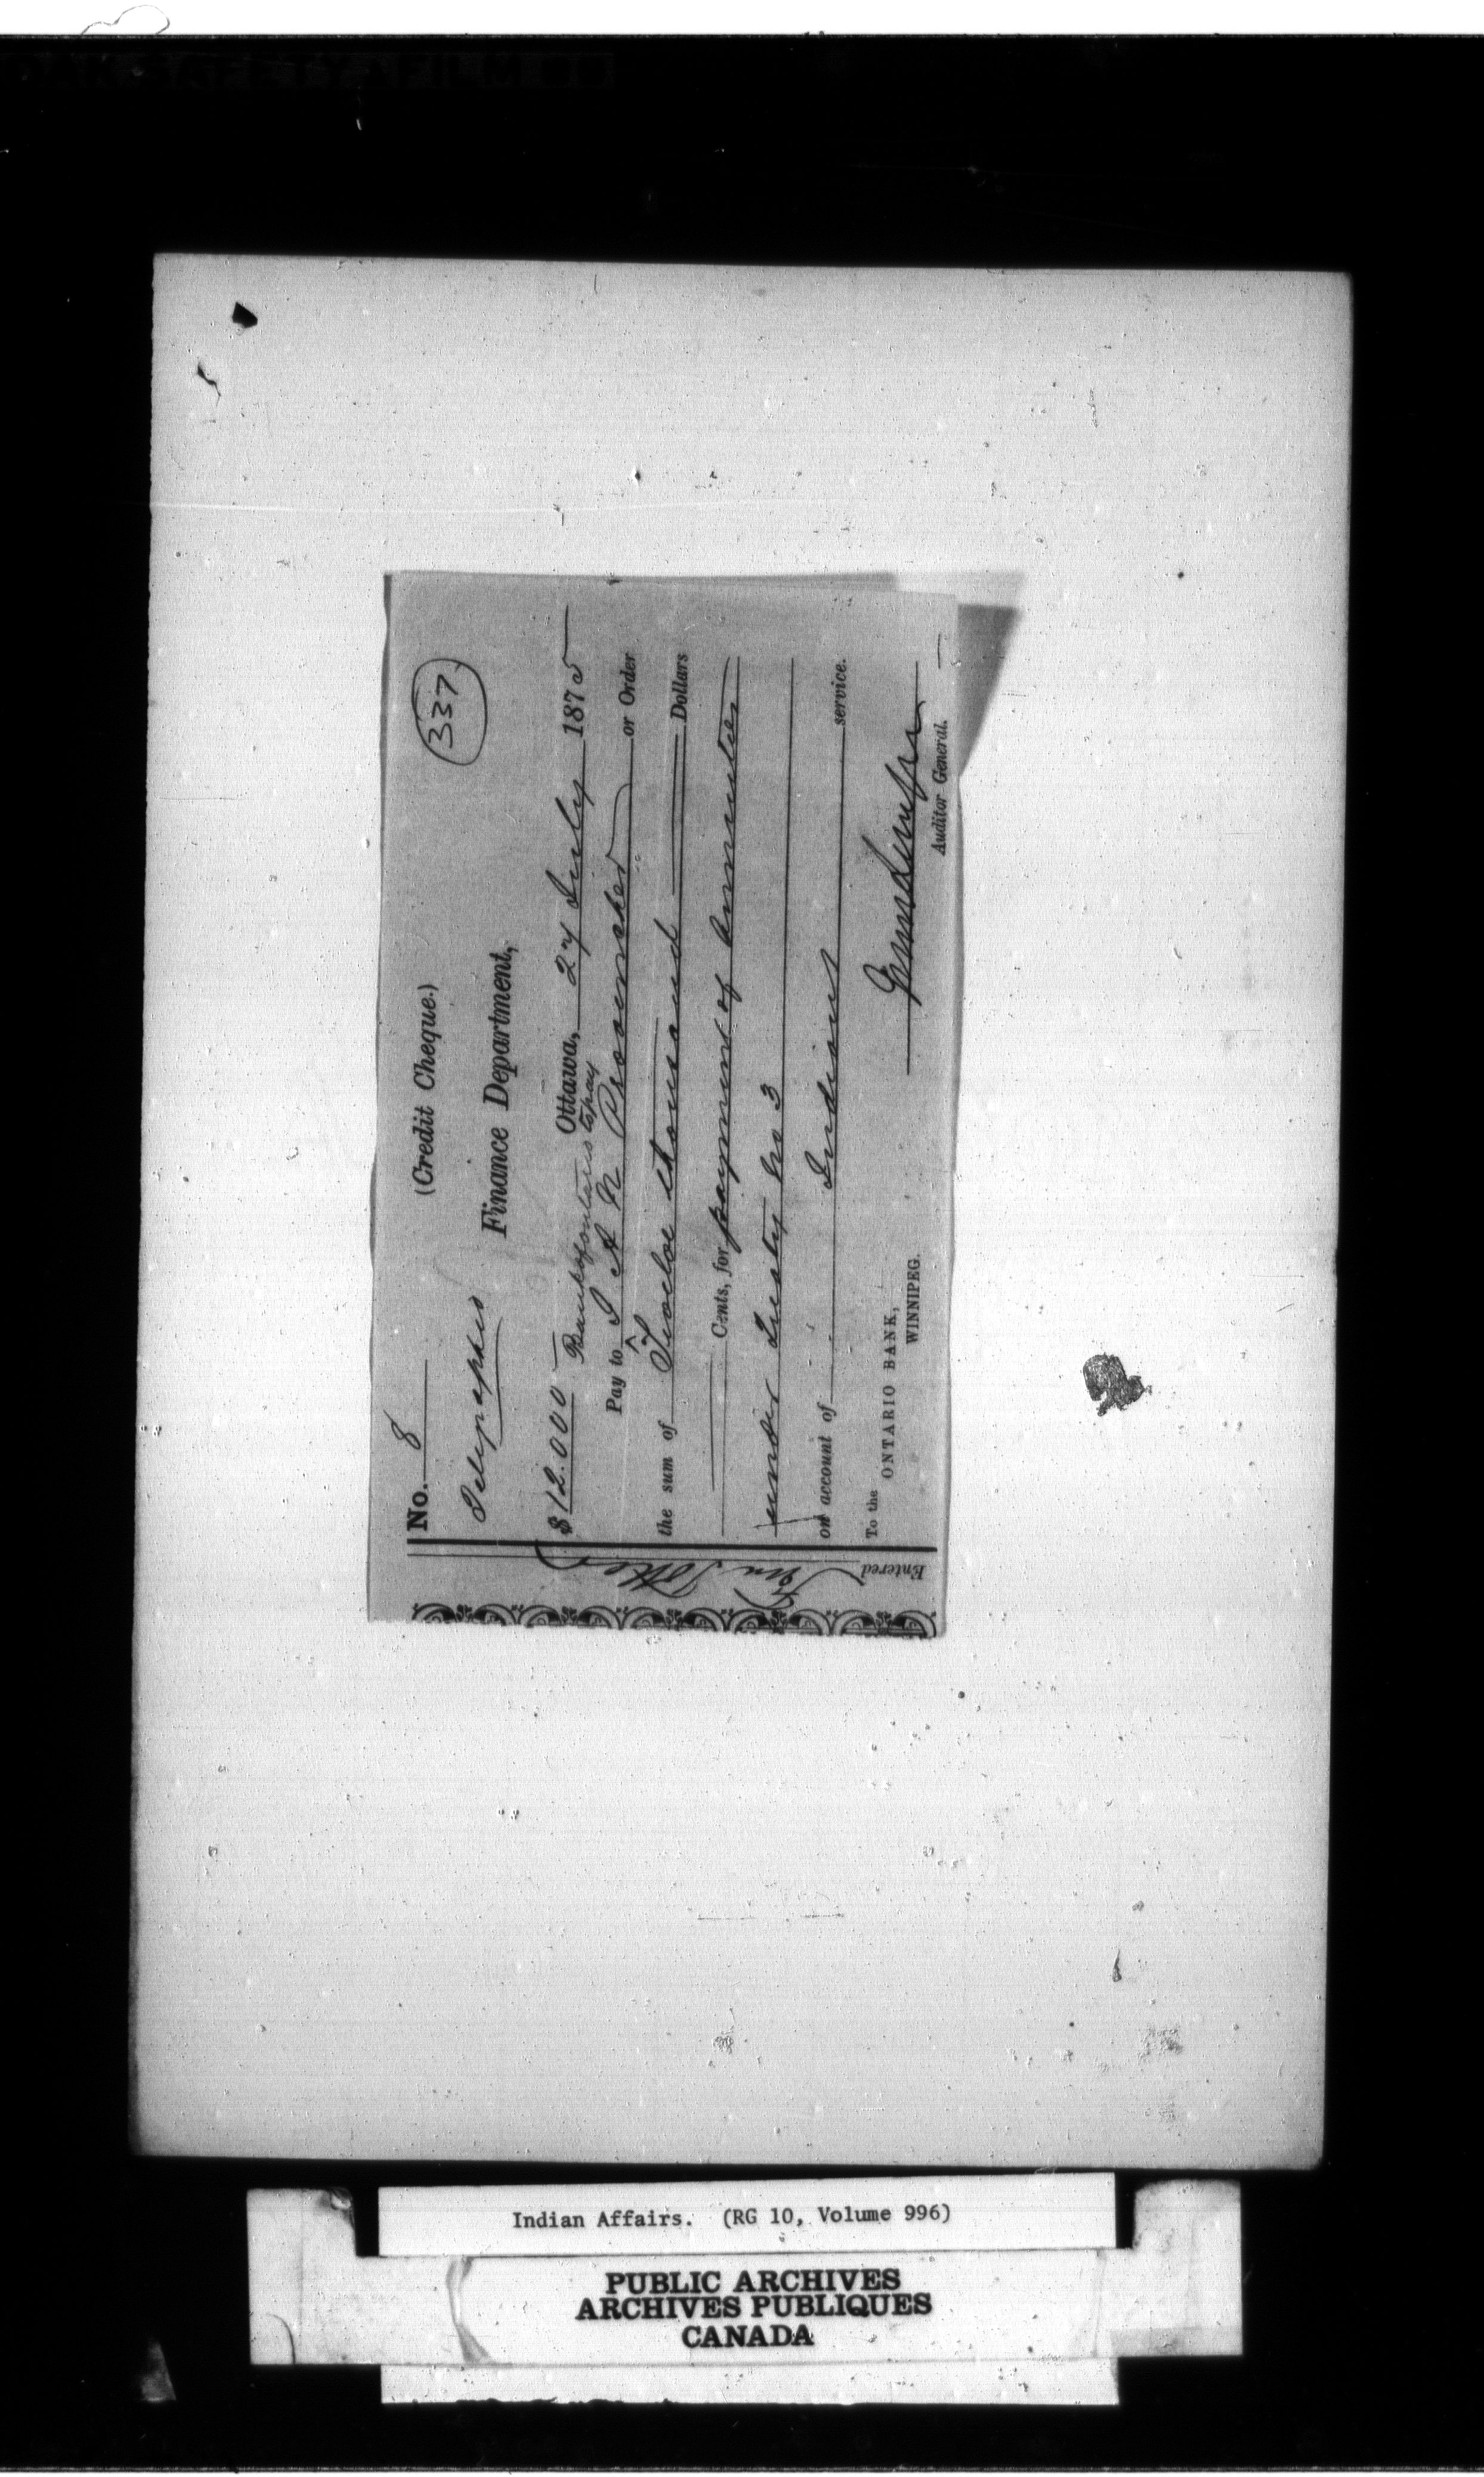 No. 8 (Credit Cheque.) 337
Telegraphed
Finance Department,
$12.000 Ottawa, 27 July 1875
Bank of Ontario to pay
Pay to J A N Provencher or Order
the sum of Twelve thousand Dollars
Cents, for payment of Annuities
under Treaty No 3
on account of Indians service.
To the
ONTARIO BANK,
WINNIPEG.
Auditor General.
Entered
Indian Affairs. (RG 10, Volume 996)
PUBLIC ARCHIVES
ARCHIVES PUBLIQUES
CANADA